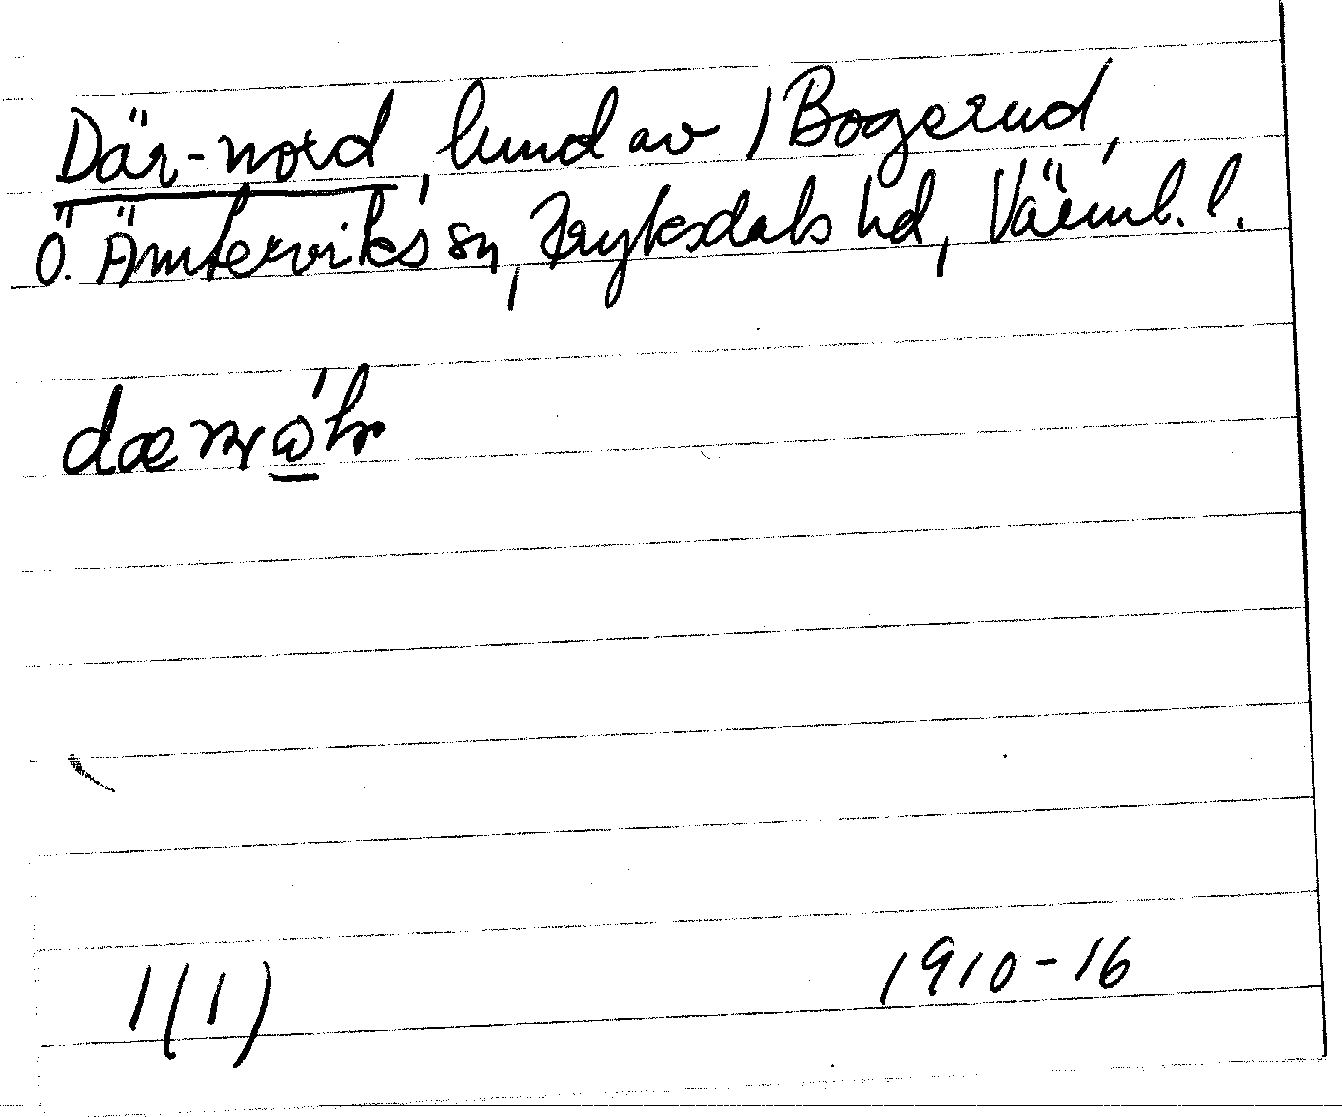 Där-nord, lund av 1 Bogerud,
Ö. Ämterviks sn, Fryksdals hd, Värml. l.
1(1) 1910-16